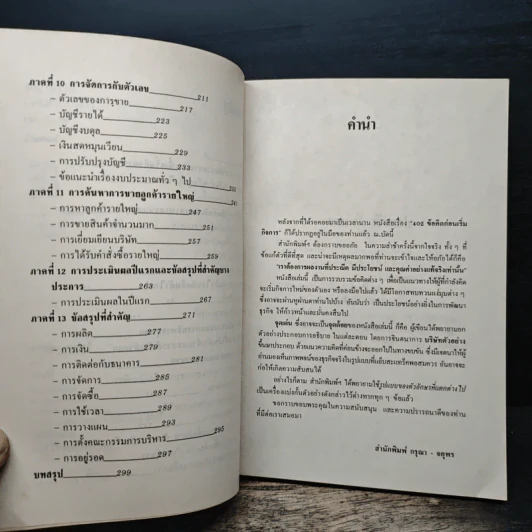 ภาคที่ 10 การจัดการกับตัวเลข 211
– ตัวเลขของการขาย 217
– บัญชีรายได้ 223
– บัญชีงบดุล 225
– เงินสดหมุนเวียน 229
– การปรับปรุงบัญชี 233
– ข้อแนะนำเรื่องงบประมาณทั่ว ๆ ไป
ภาคที่ 11 การค้นหาการขายลูกค้ารายใหญ่
– การหาลูกค้ารายใหญ่ 243
– การขายสินค้าจำนวนมาก
– การเยี่ยมเยียนบริษัท 251
– การได้รับคำสั่งซื้อรายใหญ่ 259
ภาคที่ 12 การประเมินผลปีแรกและข้อสรุปที่สำคัญบาง
ประการ 263
– การประเมินผลในปีแรก 267
ภาคที่ 13 ข้อสรุปที่สำคัญ 271
– การผลิต 277
– การเงิน
– การติดต่อกับธนาคาร 281
– การจัดการ 285
– การจัดซื้อ 287
– การใช้เวลา 289
– การวางแผน 293
– การตั้งคณะกรรมการบริหาร 295
– การอยู่รอด 297
บทสรุป 299
คำนำ
หลังจากที่ได้รอคอยมาเป็นเวลานาน หนังสือเรื่อง "402 ข้อคิดก่อนเริ่ม
กิจการ" ก็ได้ปรากฏอยู่ในมือของท่านแล้ว ณ.บัดนี้
สำนักพิมพ์ฯ ต้องกราบขออภัย ในความล่าช้าครั้งนี้จากใจจริง ทั้ง ๆ ที่
ข้อแก้ตัวที่ดีที่สุด และน่าจะมีเหตุผลมากพอที่ท่านจะเข้าใจและให้อภัยได้ก็คือ
"เราต้องการผลงานที่ประณีต มีประโยชน์ และคุณค่าอย่างแท้จริงเท่านั้น"
หนังสือเล่มนี้ เป็นการรวบรวมข้อคิดต่าง ๆ เพื่อเป็นแนวทางให้ผู้ที่กำลังคิด
จะเริ่มกิจการใหม่ของตัวเอง หรือลงมือไปแล้ว ได้มีโอกาสทบทวนแง่มุมต่าง ๆ
ซึ่งอาจจะผ่านหูผ่านตาท่านไปบ้าง อันนับว่า เป็นประโยชน์อย่างยิ่งในการพัฒนา
ธุรกิจ ให้ก้าวหน้าและมั่นคงสืบไป
จุดเด่น ซึ่งอาจจะเป็นจุดด้อยของหนังสือเล่มนี้ ก็คือ ผู้เขียนได้พยายามยก
ตัวอย่างประกอบการอธิบาย ในแต่ละตอน โดยการจินตนาการ บริษัทตัวอย่าง
ขึ้นมาประกอบ ด้วยแนวความคิดที่ค่อนข้างจะออกไปในทางขบขัน ซึ่งมีเจตนาให้ผู้
อ่านมองเห็นภาพพจน์ของธุรกิจจริงในรูปแบบที่แฝงสาระเกร็ดพอสมควร อันอาจจะ
ก่อให้เกิดความสับสนได้
อย่างไรก็ตาม สำนักพิมพ์ฯ ได้พยายามใช้รูปแบบของตัวอักษรที่แตกต่างไป
เป็นเครื่องแบ่งกั้นตัวอย่างดังกล่าวไว้ต่างหากทุก ๆ ข้อแล้ว
ขอกราบขอบพระคุณในความสนับสนุน และความปรารถนาดีของท่าน
ที่มีต่อเราเสมอมา
สำนักพิมพ์ กรุณา - จตุพร